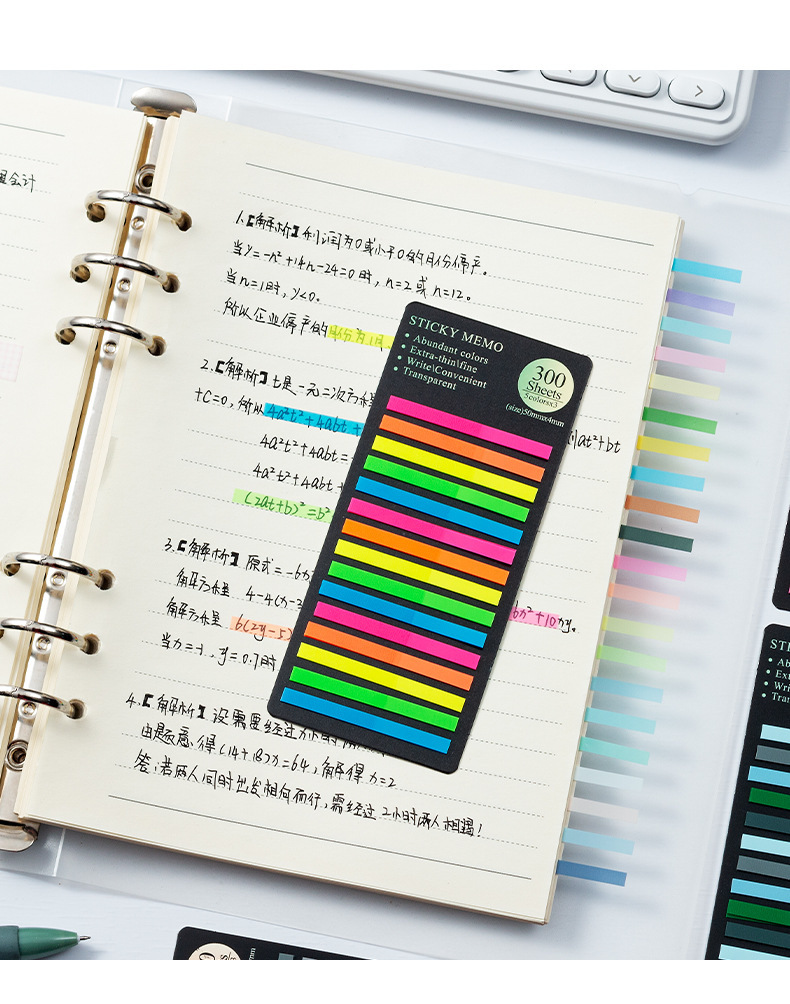 里会计
1.【解析】利润为0或小于0的月份停产。
当y=-n²+14n-24=0时, n=2或n=12。
当n=1时, y<0。
所以企业停产的月份为1月
2.【解析】t是一元二次方程
at²+bt
+C=0, 所以4a²t²+4abt+
4a²t²+4abt=
4a²t²+4abt+
(2at+b)²=b²
3.【解析】原式=-6x
解方程 4-4(x-3
6x²+10xy。
解方程 6(2y-5)
当x=-1, y=0.7时
4.【解析】设需要经过x小时两人
由题意得(14+18)x=64, 解得x=2
答:若两人同时出发相向而行, 需经过2小时两人相遇!
STICKY MEMO
• Abundant colors
• Extra-thin\fine
• Write\Convenient
• Transparent
300
Sheets
5colorsx3
(size)50mmx4mm
STI
• Ab
• Ex
• Wri
• Tra